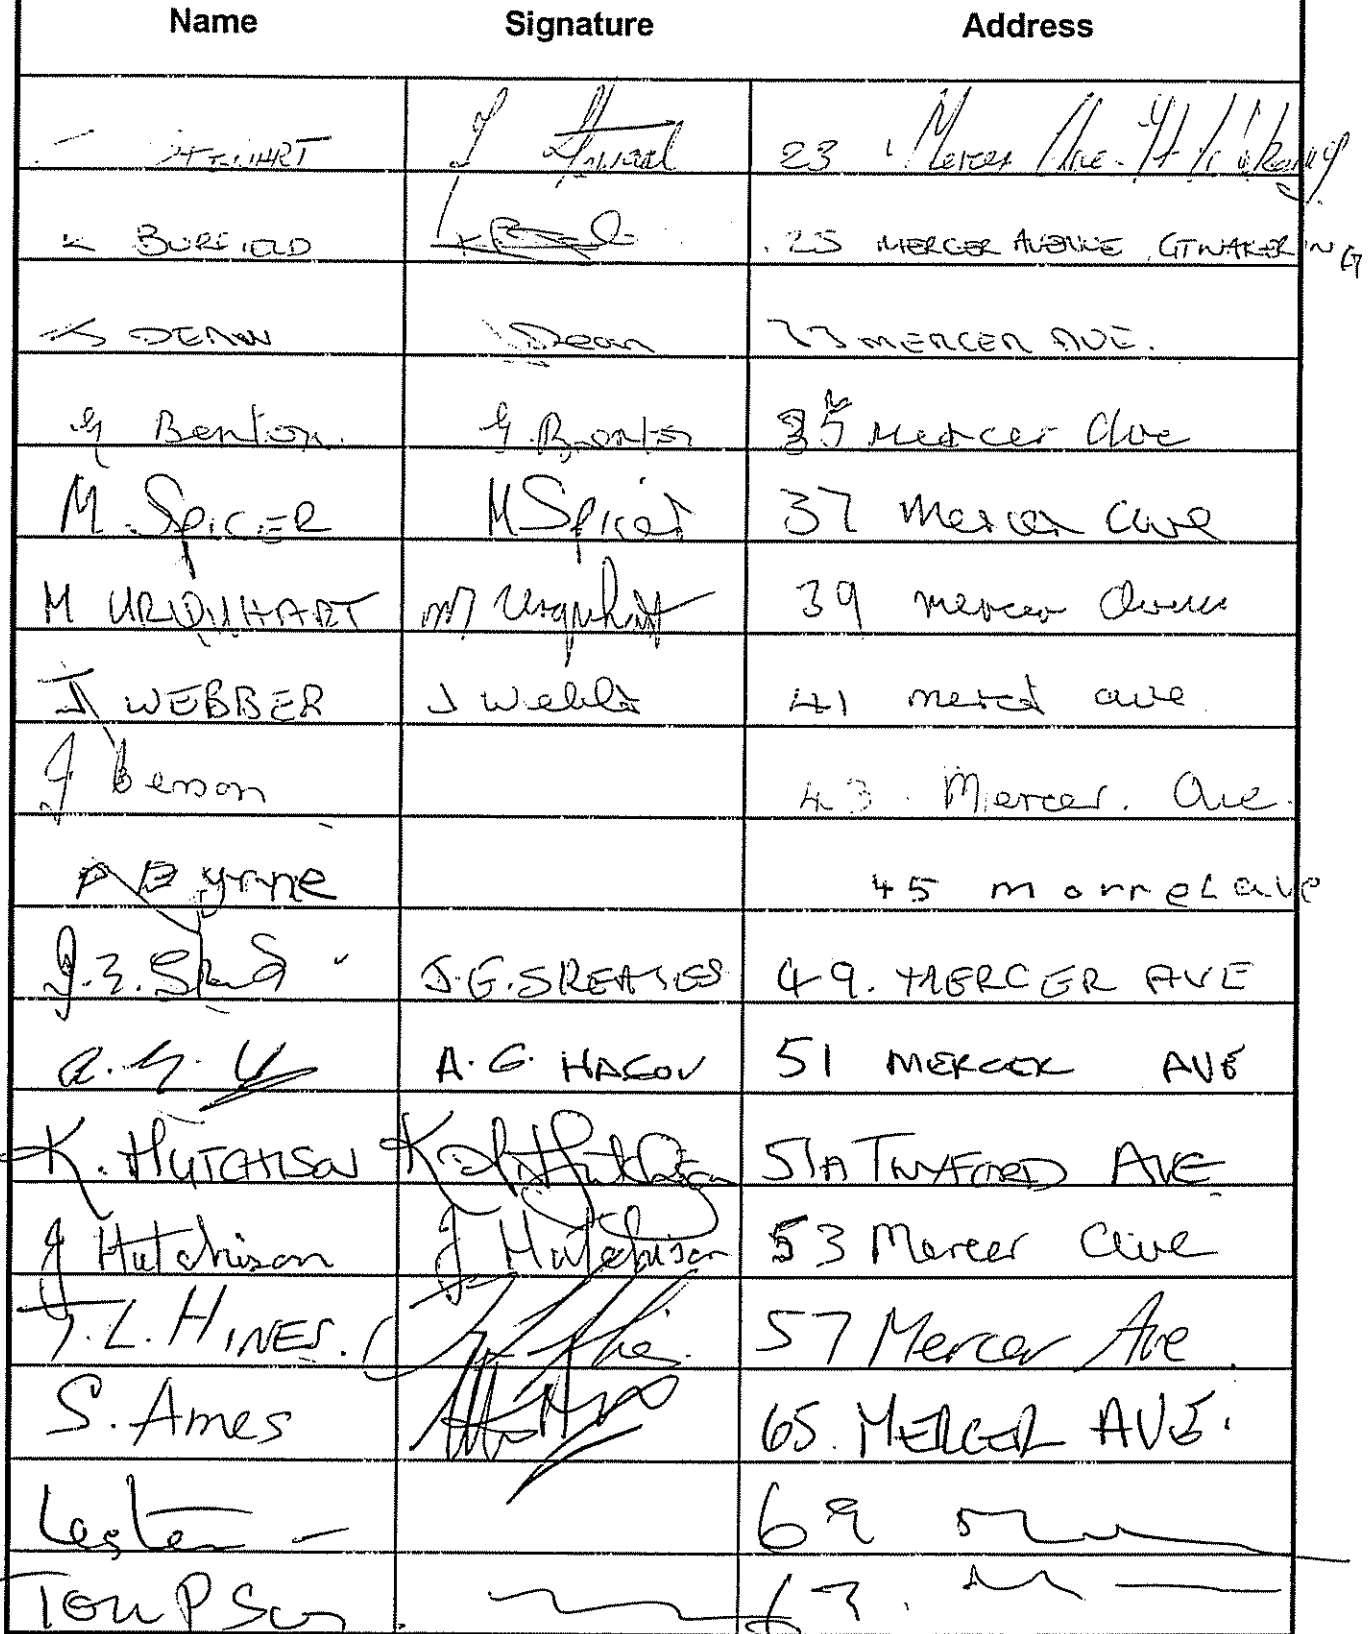 Name Signature Address
STEWART J Stewart 23 Mercer Ave Gt Wakering
K BURFIELD 25 MERCER AVENUE GTWAKERING
DEAN Dean 33 MERCER AVE.
G Benton. G. Benton 35 Mercer Ave
M. SPICER M Spicer 37 Mercer ave
M URQUHART M Urquhart 39 mercer
J WEBBER J Webber 41 ave
J Benson 43. Mercer. Ave.
P Byrne 45 ave
J.E. J.E. 49. MERCER AVE
A.G. 51 MERCER AVE
K. HUTCHISON K Hutchison 51A TWYFORD AVE
J Hutchison J Hutchison 53 Mercer Ave
T.L. HINES. 57 Mercer Ave
S. Ames 65. MERCER AVE.
Lester 69
TOMPSON 63.